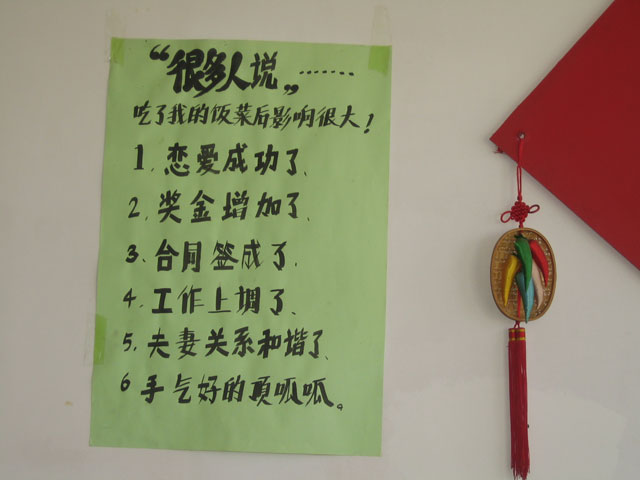 “很多人说”……
吃了我的饭菜后影响很大！
1.恋爱成功了.
2.奖金增加了.
3.合同签成了.
4.工作上调了.
5.夫妻关系和谐了.
6手气好的顶呱呱。